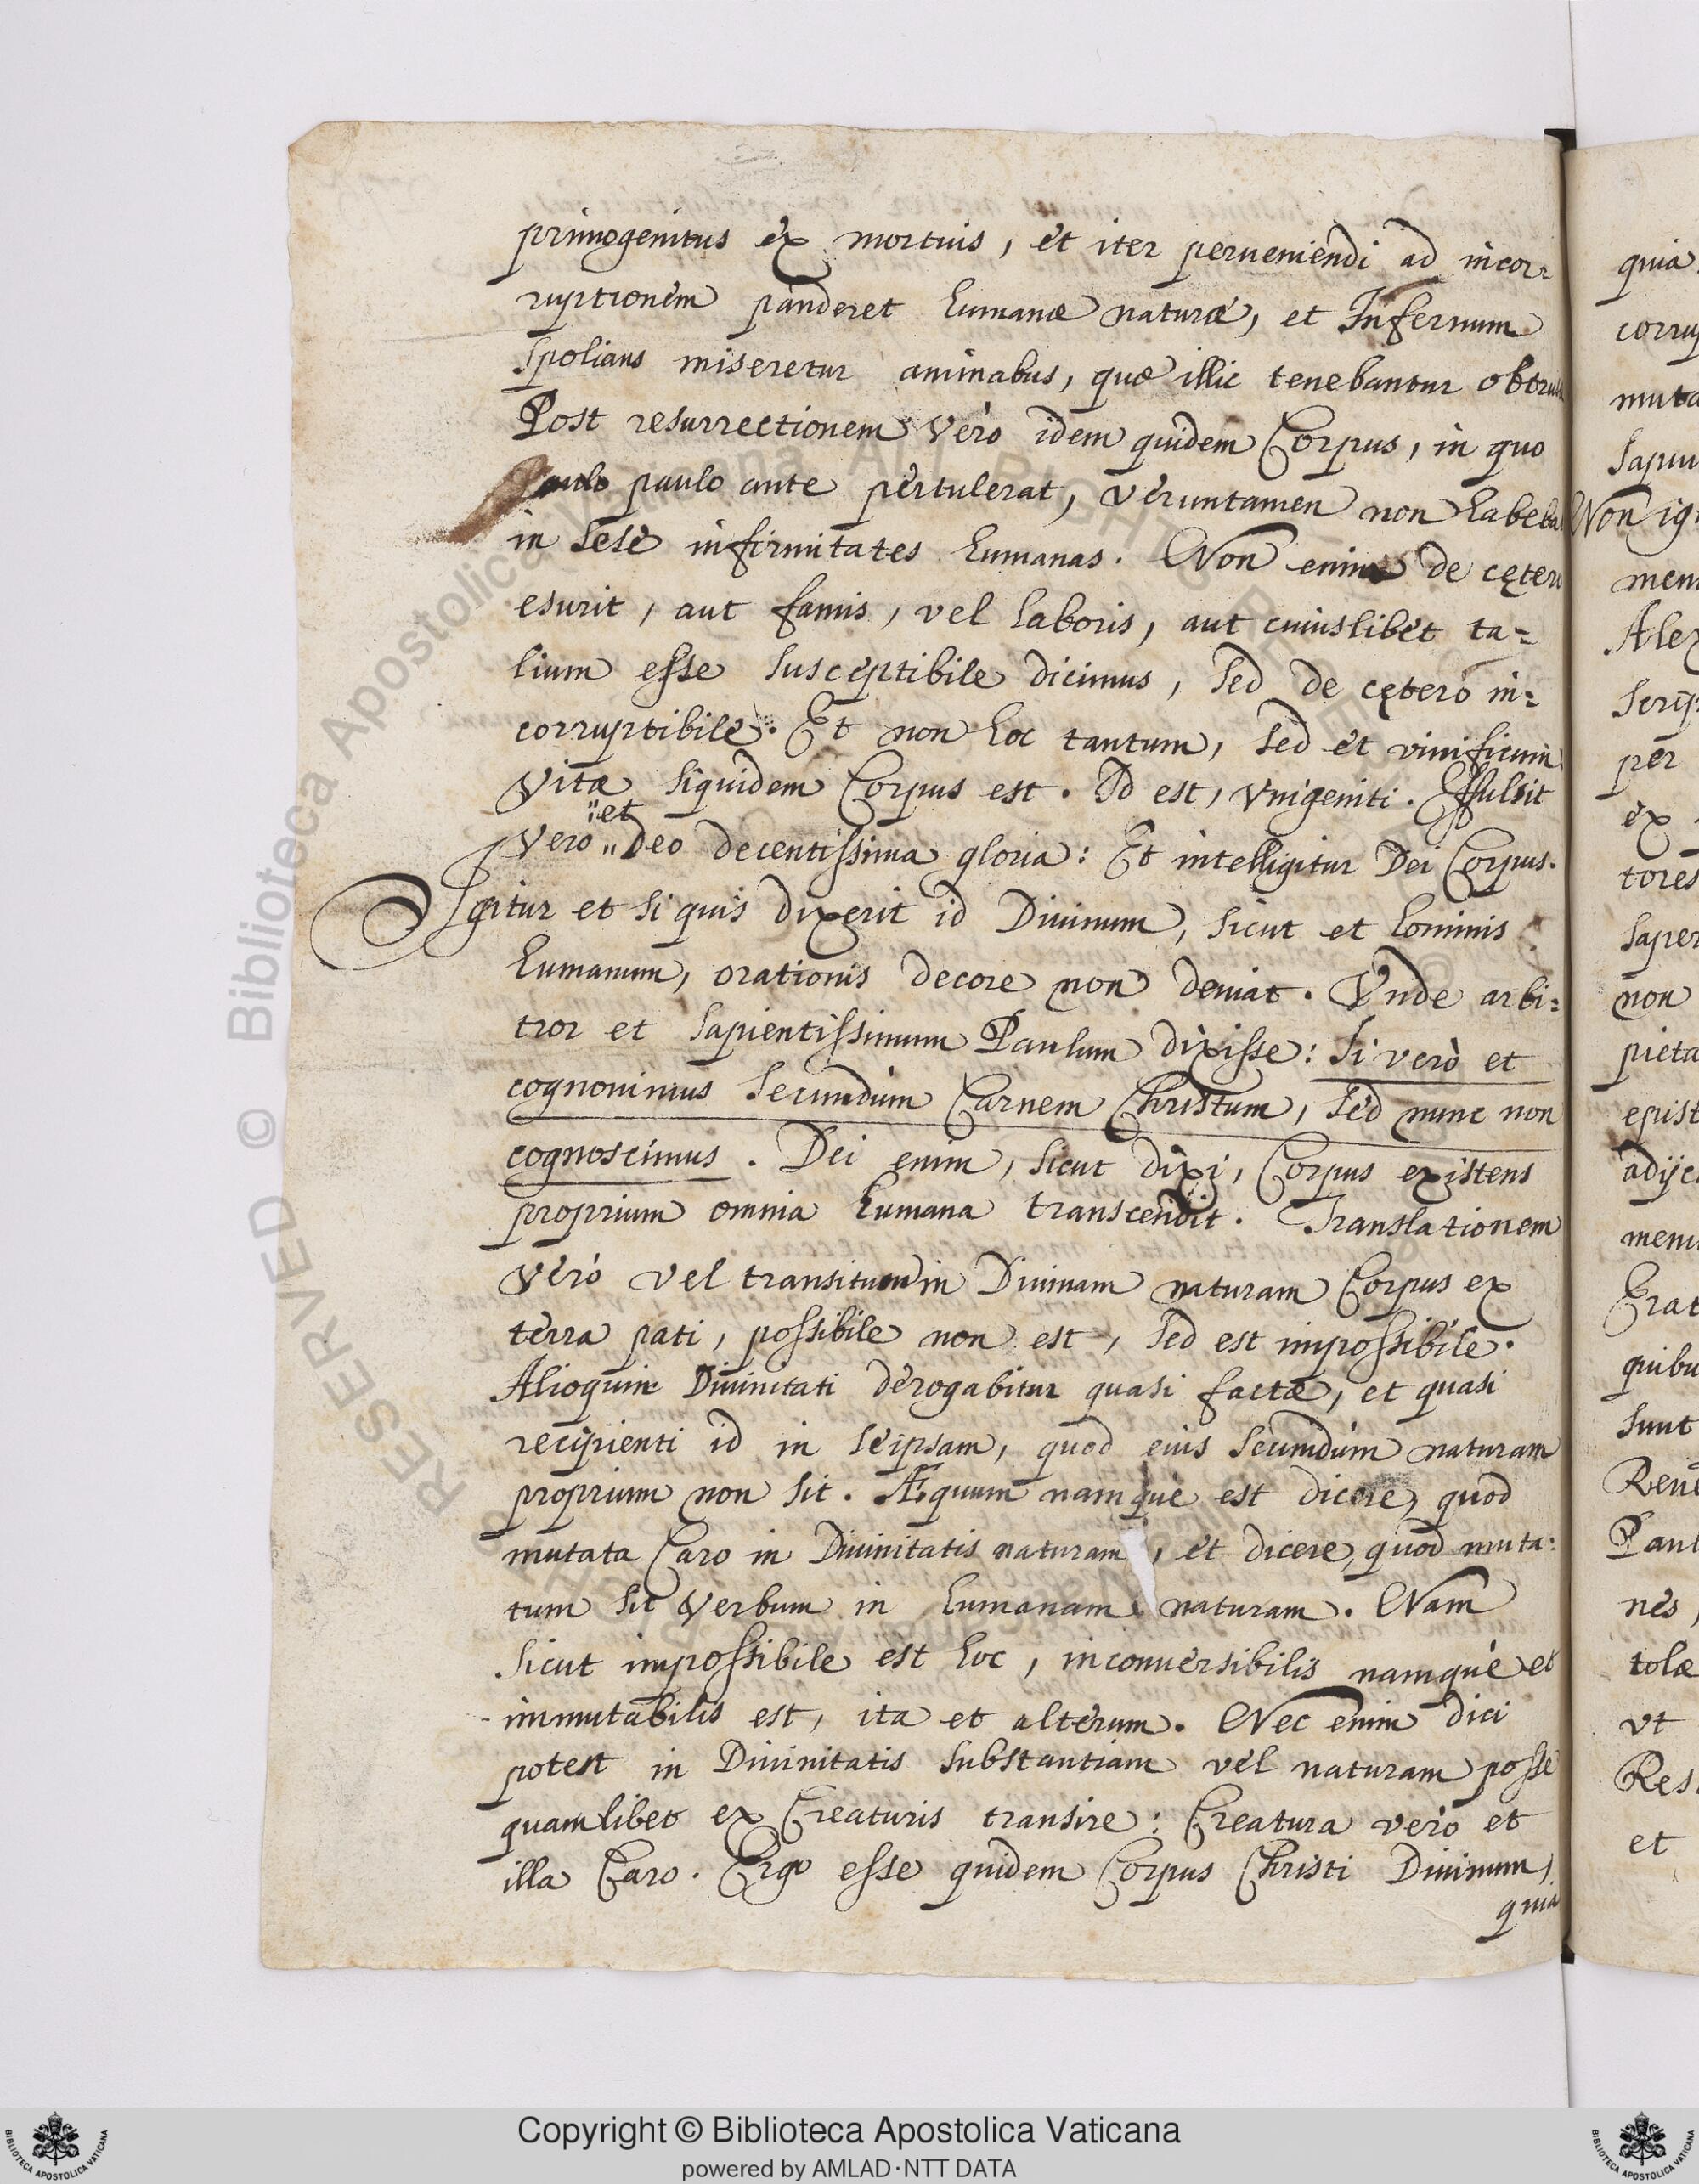 primogenitus ex mortuis, et iter perueniendi ad incor=
ruptionem panderet humanæ naturæ, et Infernum
spolians miseretur animabus, quæ illic tenebantur
Post resurrectionem verò idem quidem Corpus, in quo
paulo ante pertulerat, veruntamen non habeba
in sese infirmitates humanas. Non enim de cętero
esurit, aut famis, vel laboris, aut cuiuslibet ta=
lium esse susceptibile dicimus, sed de cętero in=
corruptibile. Et non hoc tantum, sed et viuificum
Vitæ siquidem Corpus est. Id est, Vnigeniti. Effulsit
et
vero " Deo decentissima gloria: Et intelligitur Dei Corpus.
Igitur et si quis dixerit id Diuinum, sicut et hominis
humanum, orationis decore non deuiat. Vnde arbi=
tror et sapientissimum Paulum dixisse: Si verò et
cognouimus secundùm Carnem Christum, sed nunc non
cognoscimus. Dei enim, sicut dixi, Corpus existens
proprium omnia humana transcendit. Translationem
verò vel transitum in Diuinam naturam Corpus ex
terra pati, possibile non est, sed est impossibile.
Alioquin Diuinitati derogabitur quasi factæ, et quasi
recipienti id in seipsam, quod eius secundùm naturam
proprium non sit. Æquum namque est dicere, quod
mutata Caro in Diuinitatis naturam, et dicere, quod muta=
tum sit Verbum in humanam naturam. Nam
sicut impossibile est hoc, inconuersibilis namque et
immutabilis est, ita et alterum. Nec enim dici
potest in Diuinitatis substantiam vel naturam posse
quamlibet ex Creaturis transire: Creatura verò et
illa Caro. Ergo esse quidem Corpus Christi Diuinum,
quia
quia
corrup
muta
sapiu
Non ig
mem
Alex
scrip
per
ex
tores
saper
non
pieta
epist
adijc
Erat
quibu
sunt
Paul
nes,
tolæ
vt
Res
et
© Biblioteca Apostolica Vaticana ALL RIGHTS RESERVED
Copyright © Biblioteca Apostolica Vaticana
powered by AMLAD·NTT DATA
BIBLIOTECA APOSTOLICA VATICANA
BIBLIOTECA APOSTOLICA VATICANA